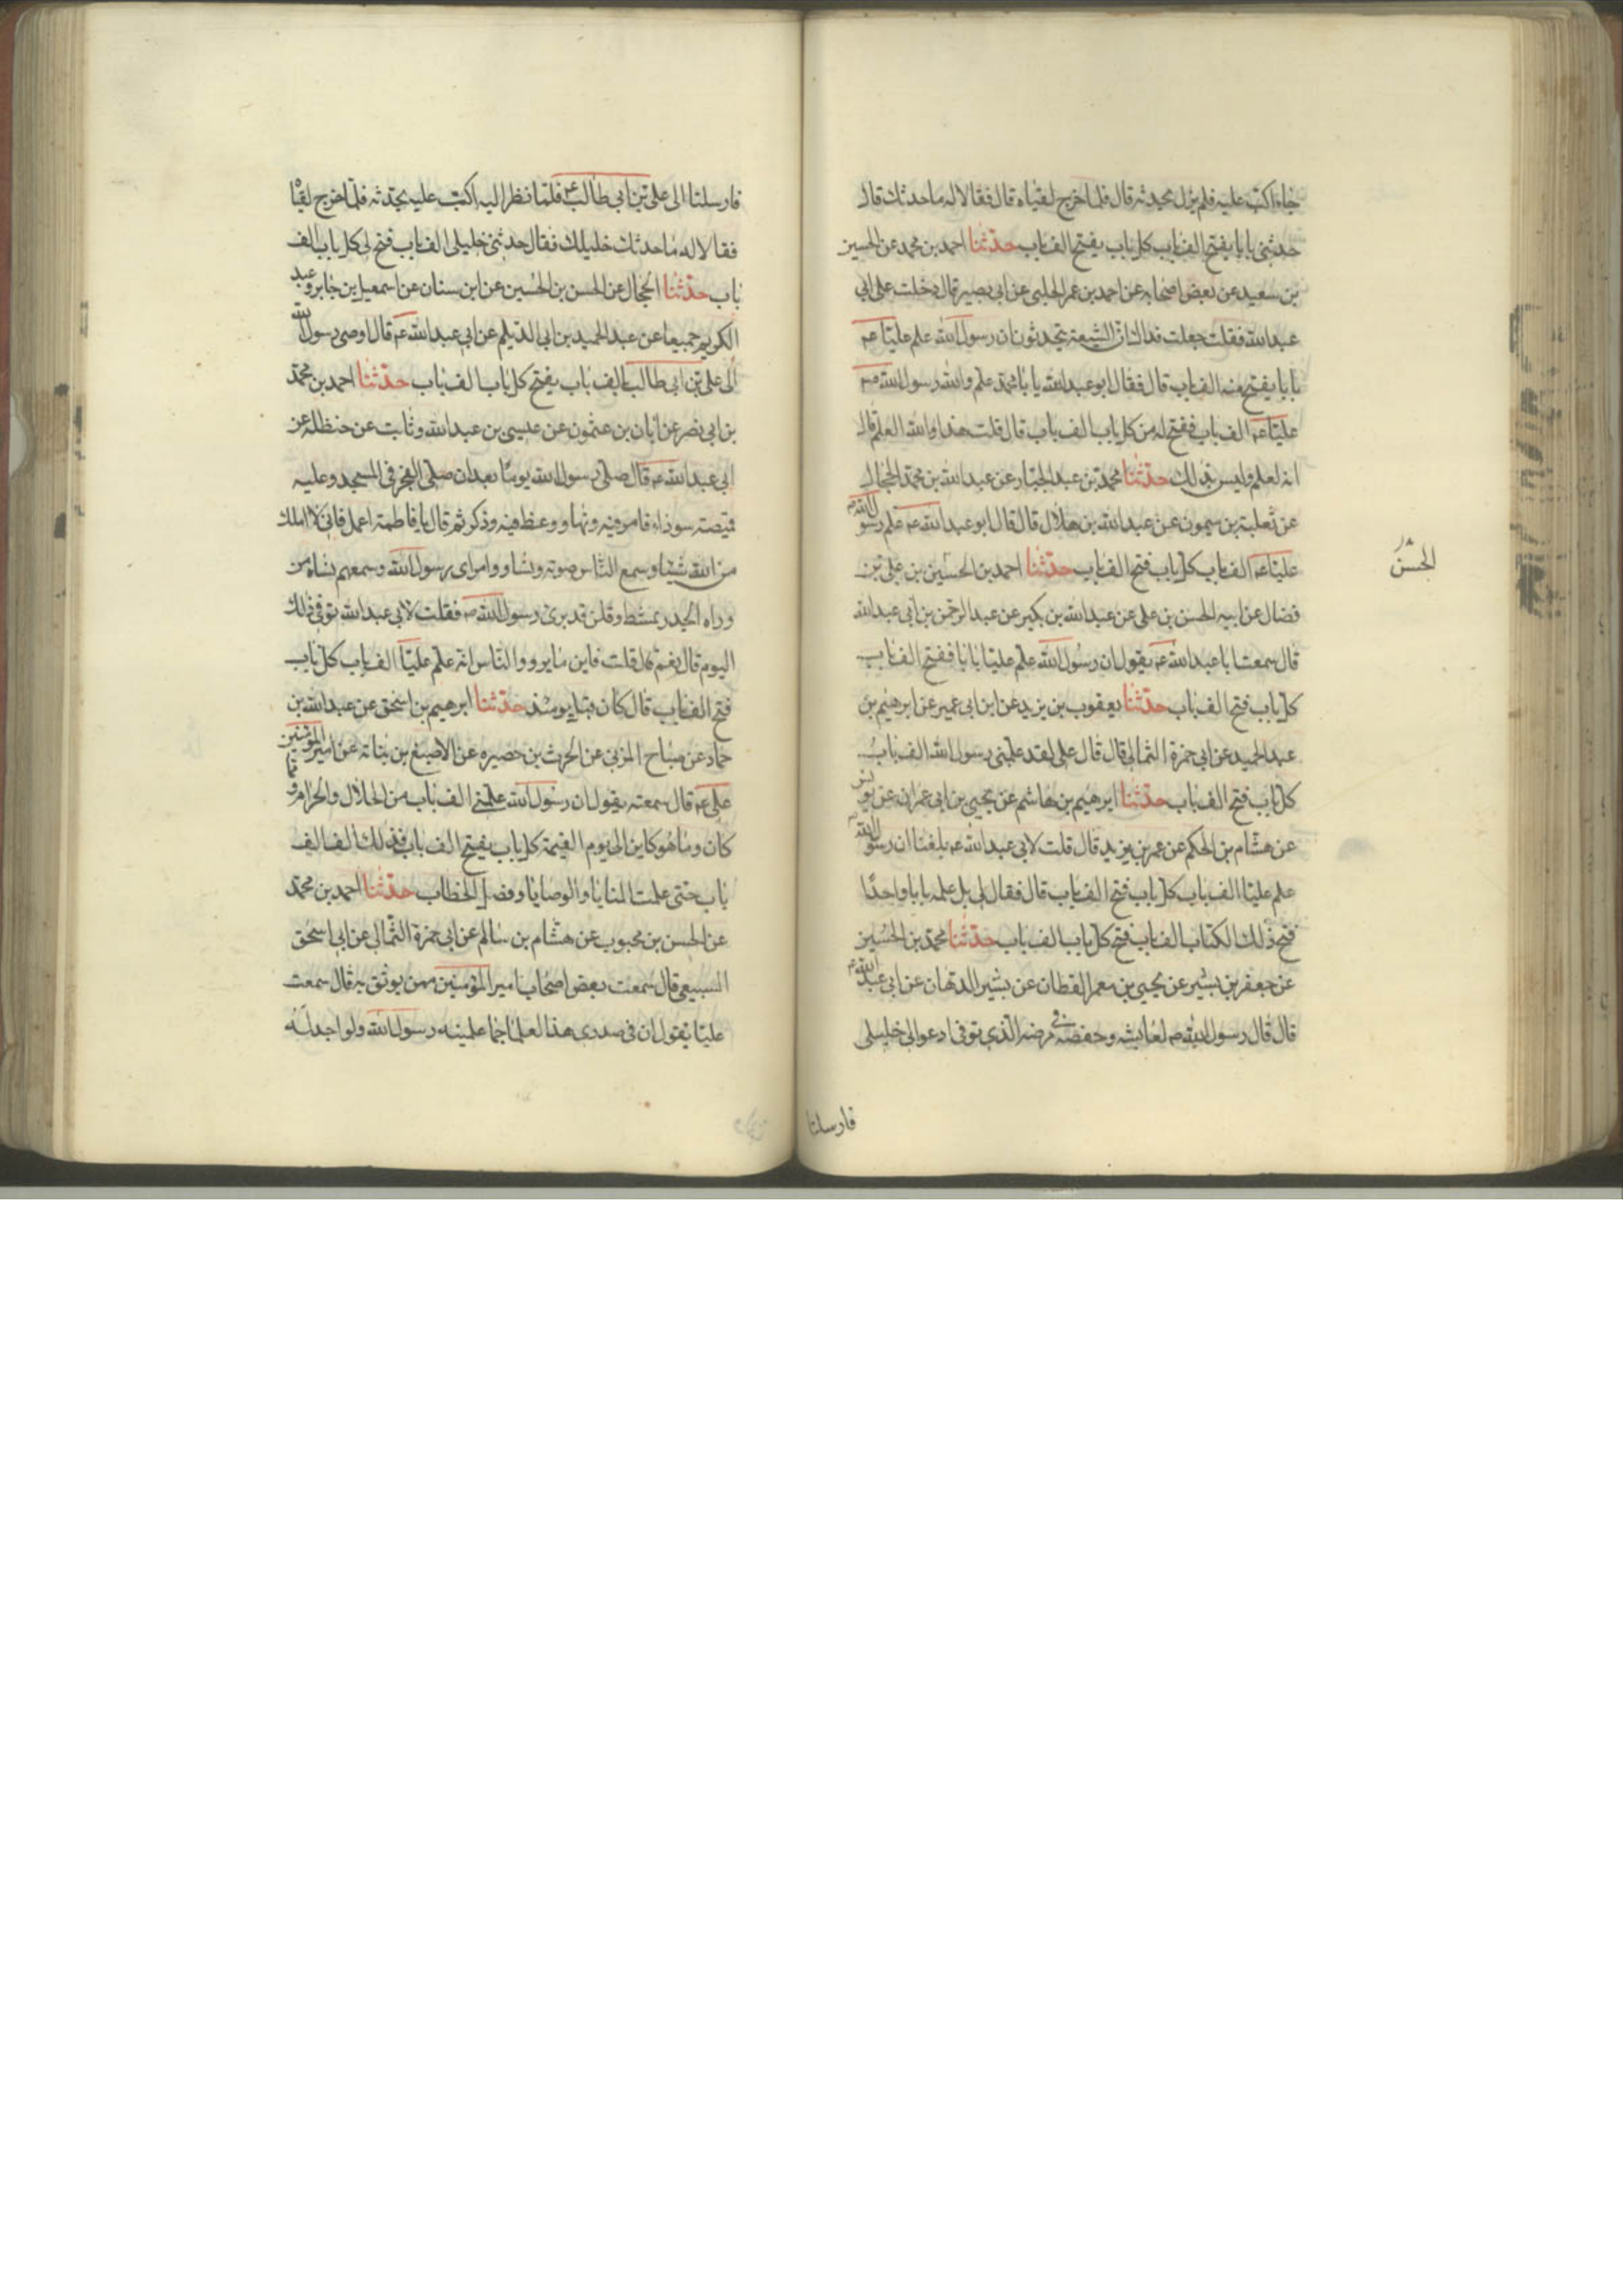 جاء اكبّ عليه فلم يزل يحدثه قال فلما خرج لقياه قال فقالا له ما حدثك قال
حدثنى بابا يفتح الف باب كل باب يفتح الف باب حدّثنا احمد بن محمد عن الحسين
بن سعيد عن بعض اصحابه عن احمد بن عمر الحلبى عن ابى بصير قال دخلت على ابى
عبد الله فقلت جعلت فداك انّ الشيعة يتحدثون ان رسول الله علم عليّا عم
بابا يفتح منه الف باب قال فقال ابو عبد الله يا با محمد علم والله رسول الله ص
عليّا عم الف باب ففتح له من كل باب الف باب قال قلت هذا والله العلم قال
انه لعلم وليس بذلك حدّثنا محمد بن عبد الجبّار عن عبد الله بن محمد الحجال
عن ثعلبة بن ميمون عن عبد الله بن هلال قال قال ابو عبد الله عم علم رسول الله ص
عليّا عم الف باب كل باب فتح الف باب حدّثنا احمد بن الحسين بن على بن
الحسن
فضال عن ابيه الحسن بن على عن عبد الله بن بكير عن عبد الرحمن بن ابى عبد الله
قال سمعت ابا عبد الله عم يقول ان رسول الله علم عليّا بابا ففتح الف باب
كل باب فتح الف باب حدّثنا يعقوب بن يزيد عن ابن ابى عمير عن ابرهيم بن
عبد الحميد عن ابى حمزة الثمالى قال قال على لقد علمنى رسول الله الف باب
كل باب فتح الف باب حدّثنا ابرهيم بن هاشم عن يحيى بن ابى عمران عن يونس
عن هشام بن الحكم عن عمر بن يزيد قال قلت لابى عبد الله عم بلغنا ان رسول الله ص
علم عليّا الف باب كل باب فتح الف باب قال فقال لى بل علمه بابا واحدًا
فتح ذلك الكتاب الف باب فتح كل باب الف باب حدّثنا محمد بن الحسين
عن جعفر بن بشير عن يحيى بن معمر القطان عن بشير الدهان عن ابى عبد الله ع
قال قال رسول الله ص لعايشه وحفصه فى مرضه الذى توفى ادعوا لى خليلى
فارسلتا
فارسلتا الى على بن ابى طالب ع فلمّا نظر اليه اكبّ عليه يحدّثه فلمّا خرج لقيا
فقالا له ما حدثك خليلك فقال حدثنى خليلى الف باب فتح لى كل باب الف
باب حدّثنا الحجال عن الحسن بن الحسين عن ابن سنان عن اسمعيل بن جابر وعبد
الكريم جميعا عن عبد الحميد بن ابى الديلم عن ابى عبد الله عم قال اوصى رسول الله
الى على بن ابى طالب بالف باب يفتح كل باب الف باب حدّثنا احمد بن محمد
بن ابى نصر عن ابان بن عثمون عن عيسى بن عبد الله وثابت عن حنظلة عن
ابى عبد الله عم قال صلى رسول الله يومًا بعد ان صلى الفجر فى المسجد وعليه
قميصة سوداء فامر فيه ونها ووعظ فيه وذكر ثم قال يا فاطمة اعمل فانى لا املك
من الله شيئا وسمع الناس صوته وامراى رسول الله وسمعهم نساه من
وراه الجدر يمشط وقلن قد برئ رسول الله ص فقلت لابى عبد الله توفى ذلك
اليوم قال نعم قال قلت فاين ما يرووا الناس انه علم عليّا الف باب كل باب
فتح الف باب قال كان قبل يومئذ حدّثنا ابرهيم بن اسحق عن عبد الله بن
حماد عن صباح المزنى عن الحرث بن حصيره عن الاصبغ بن نباتة عن امير المؤمنين
على عم قال سمعته يقول ان رسول الله علمنى الف باب من الحلال والحرام ومما
كان وما هو كاين الى يوم القيمة كل باب يفتح الف باب فذلك الف الف
باب حتى علمت المنايا والوصايا وفصل الخطاب حدّثنا احمد بن محمد
عن الحسن بن محبوب عن هشام بن سالم عن ابى حمزة الثمالى عن ابى اسحق
السبيعى قال سمعت بعض اصحاب امير المؤمنين ممن يوثق به قال سمعت
عليّا يقول ان فى صدرى هذا لعلما جما علمنيه رسول الله ولو اجد له